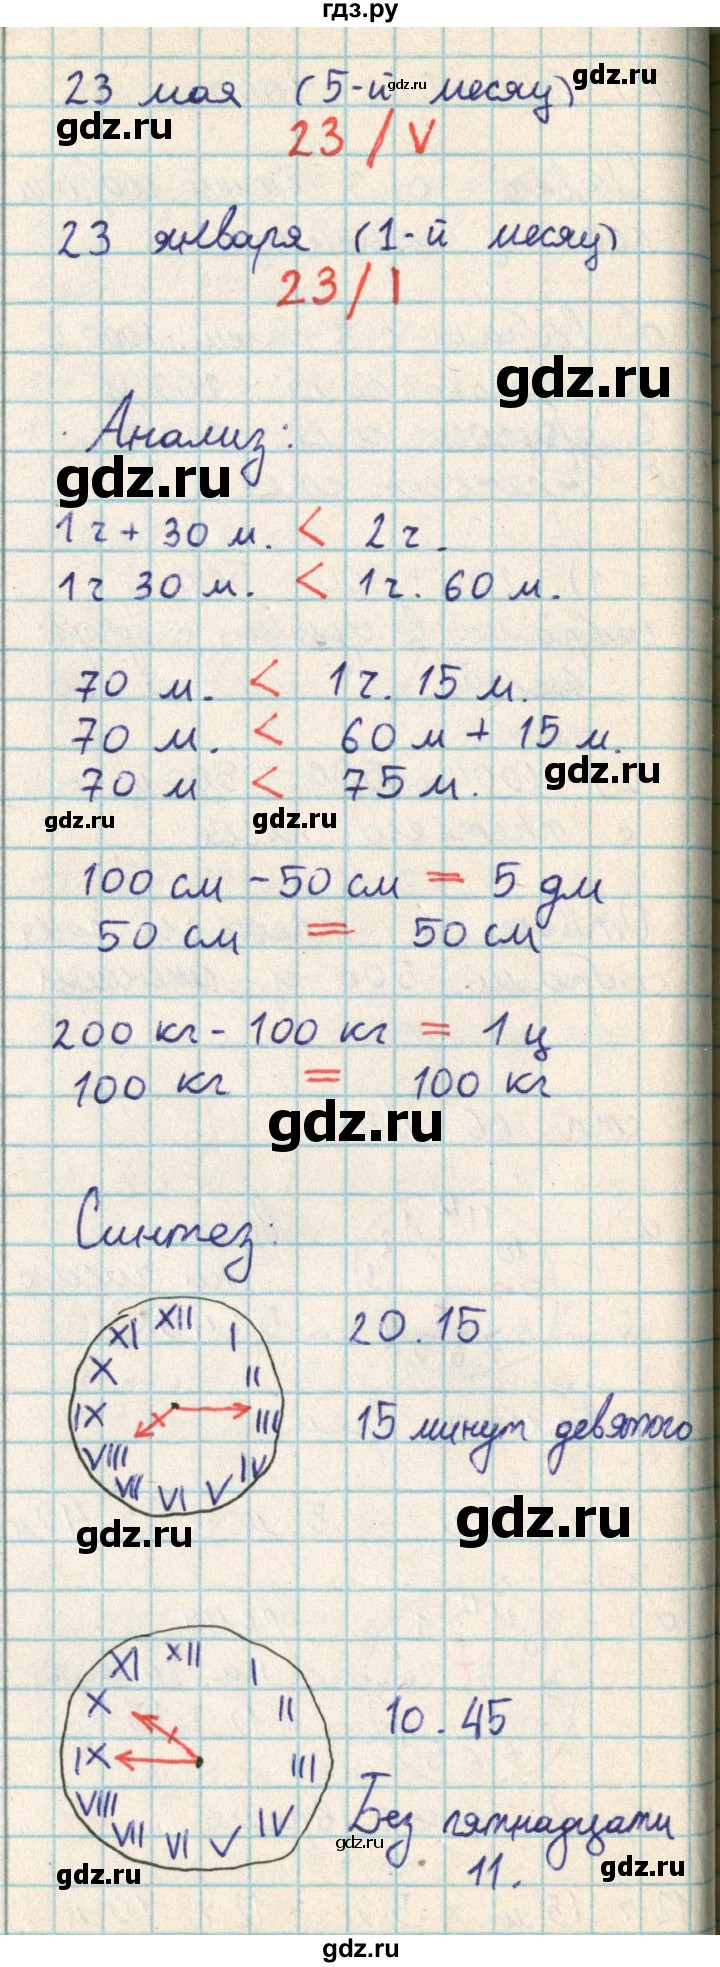 гдз.ру
23 мая (5-й месяц)
23 / V
23 января (1-й месяц)
23 / I
gdz.ru
gdz.ru
gdz.ru
gdz.ru
Анализ:
gdz.ru
1 ч + 30 м. < 2 ч.
1 ч 30 м. < 1 ч. 60 м.
70 м. < 1 ч. 15 м.
70 м. < 60 м + 15 м.
70 м < 75 м.
gdz.ru
gdz.ru
gdz.ru
100 см - 50 см = 5 дм
50 см = 50 см
200 кг - 100 кг = 1 ц
100 кг = 100 кг
gdz.ru
Синтез:
XII I II III IV V VI VII VIII IX X XI
20.15
15 минут девятого
gdz.ru
gdz.ru
XII I II III IV V VI VII VIII IX X XI
10.45
Без пятнадцати
11.
gdz.ru
gdz.ru
gdz.ru
gdz.ru